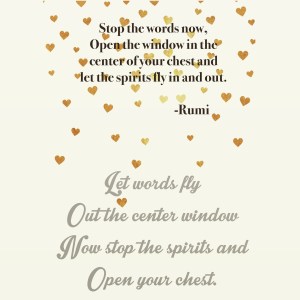 Stop the words now,
Open the window in the
center of your chest and
let the spirits fly in and out.
-Rumi
Let words fly
Out the center window
Now stop the spirits and
Open your chest.